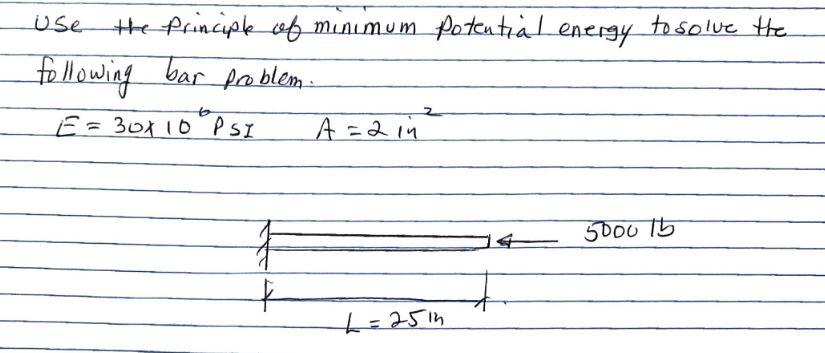 Use the principle of minimum potential energy to solve the
following bar problem.
E = 30x10⁶ PSI A = 2 in²
5000 lb
L = 25 in